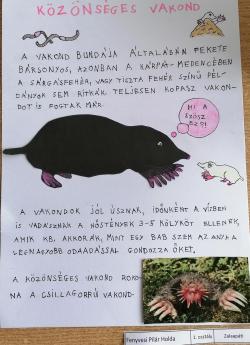 KÖZÖNSÉGES VAKOND
A VAKOND BUNDÁJA ÁLTALÁBAN FEKETE
BÁRSONYOS, AZONBAN A KÁRPÁT-MEDENCÉBEN
A SÁRGÁSFEHÉR, VAGY TISZTA FEHÉR SZÍNŰ PÉL-
DÁNYOK SEM RITKÁK. TELJESEN KOPASZ VAKON-
DOT IS FOGTAK MÁR.
MI A
SZÖSZ
EZ?!
A VAKONDOK JÓL ÚSZNAK, IDŐNKÉNT A VÍZBEN
IS VADÁSZNAK A NŐSTÉNYEK 3-5 KÖLYKÖT ELLENEK,
AMIK KB. AKKORÁK, MINT EGY BAB SZEM AZ ANYA
LEGNAGYOBB ODAADÁSSAL GONDOZZA ŐKET.
A KÖZÖNSÉGES VAKOND ROKO-
NA A CSILLAGORRÚ VAKOND-
Fenyvesi Pilár Holda
2. osztály
Zalaapáti